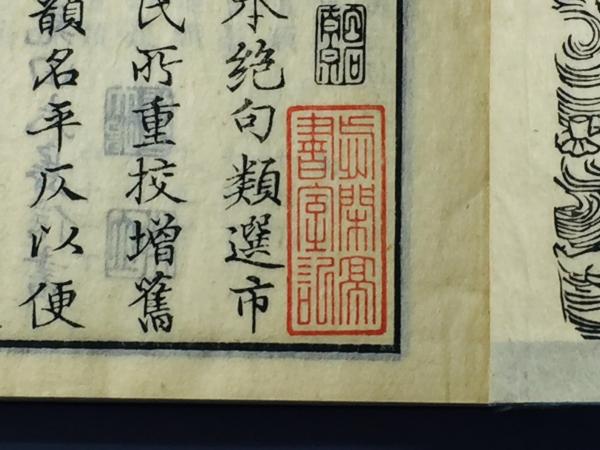 書室記
本絶句類選市
氏所重挍增舊
韻名平仄以便